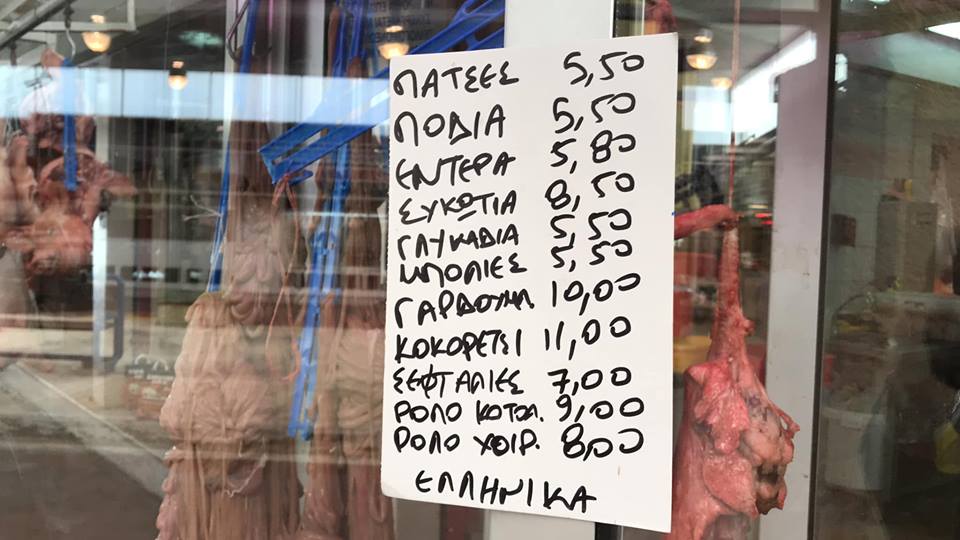 ΠΑΤΣΕΣ 5,50
ΠΟΔΙΑ 5,50
ΕΝΤΕΡΑ 5,80
ΣΥΚΩΤΙΑ 8,50
ΓΛΥΚΑΔΙΑ 5,50
ΜΠΟΛΙΕΣ 5,50
ΓΑΡΔΟΥΜΠ. 10,00
ΚΟΚΟΡΕΤΣΙ 11,00
ΣΕΦΤΑΛΙΕΣ 7,00
ΡΟΛΟ ΚΟΤΟΠ. 9,00
ΡΟΛΟ ΧΟΙΡ. 8,00
ΕΛΛΗΝΙΚΑ